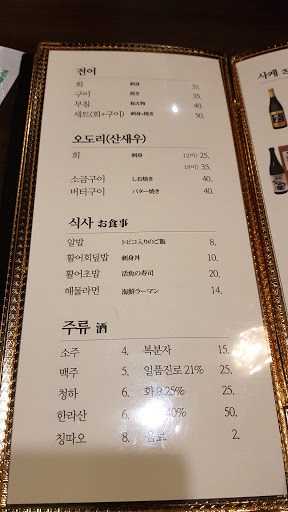 전어
회 刺身 35.
구이 焼き 35.
무침 和え物 40.
세트(회+구이) 刺身+焼き 50.
오도리(산새우)
회 刺身 12미 25.
18미 35.
소금구이 しお焼き 40.
버터구이 バター焼き 40.
식사 お食事
알밥 トビコ入りのご飯 8.
활어회덮밥 刺身丼 10.
활어초밥 活魚の寿司 20.
해물라면 海鮮ラーマン 14.
주류 酒
소주 4. 복분자 15.
맥주 5. 일품진로 21% 25.
청하 6. 화요 25% 25.
한라산 6. 40% 50.
칭따오 8. 음료 2.
사케